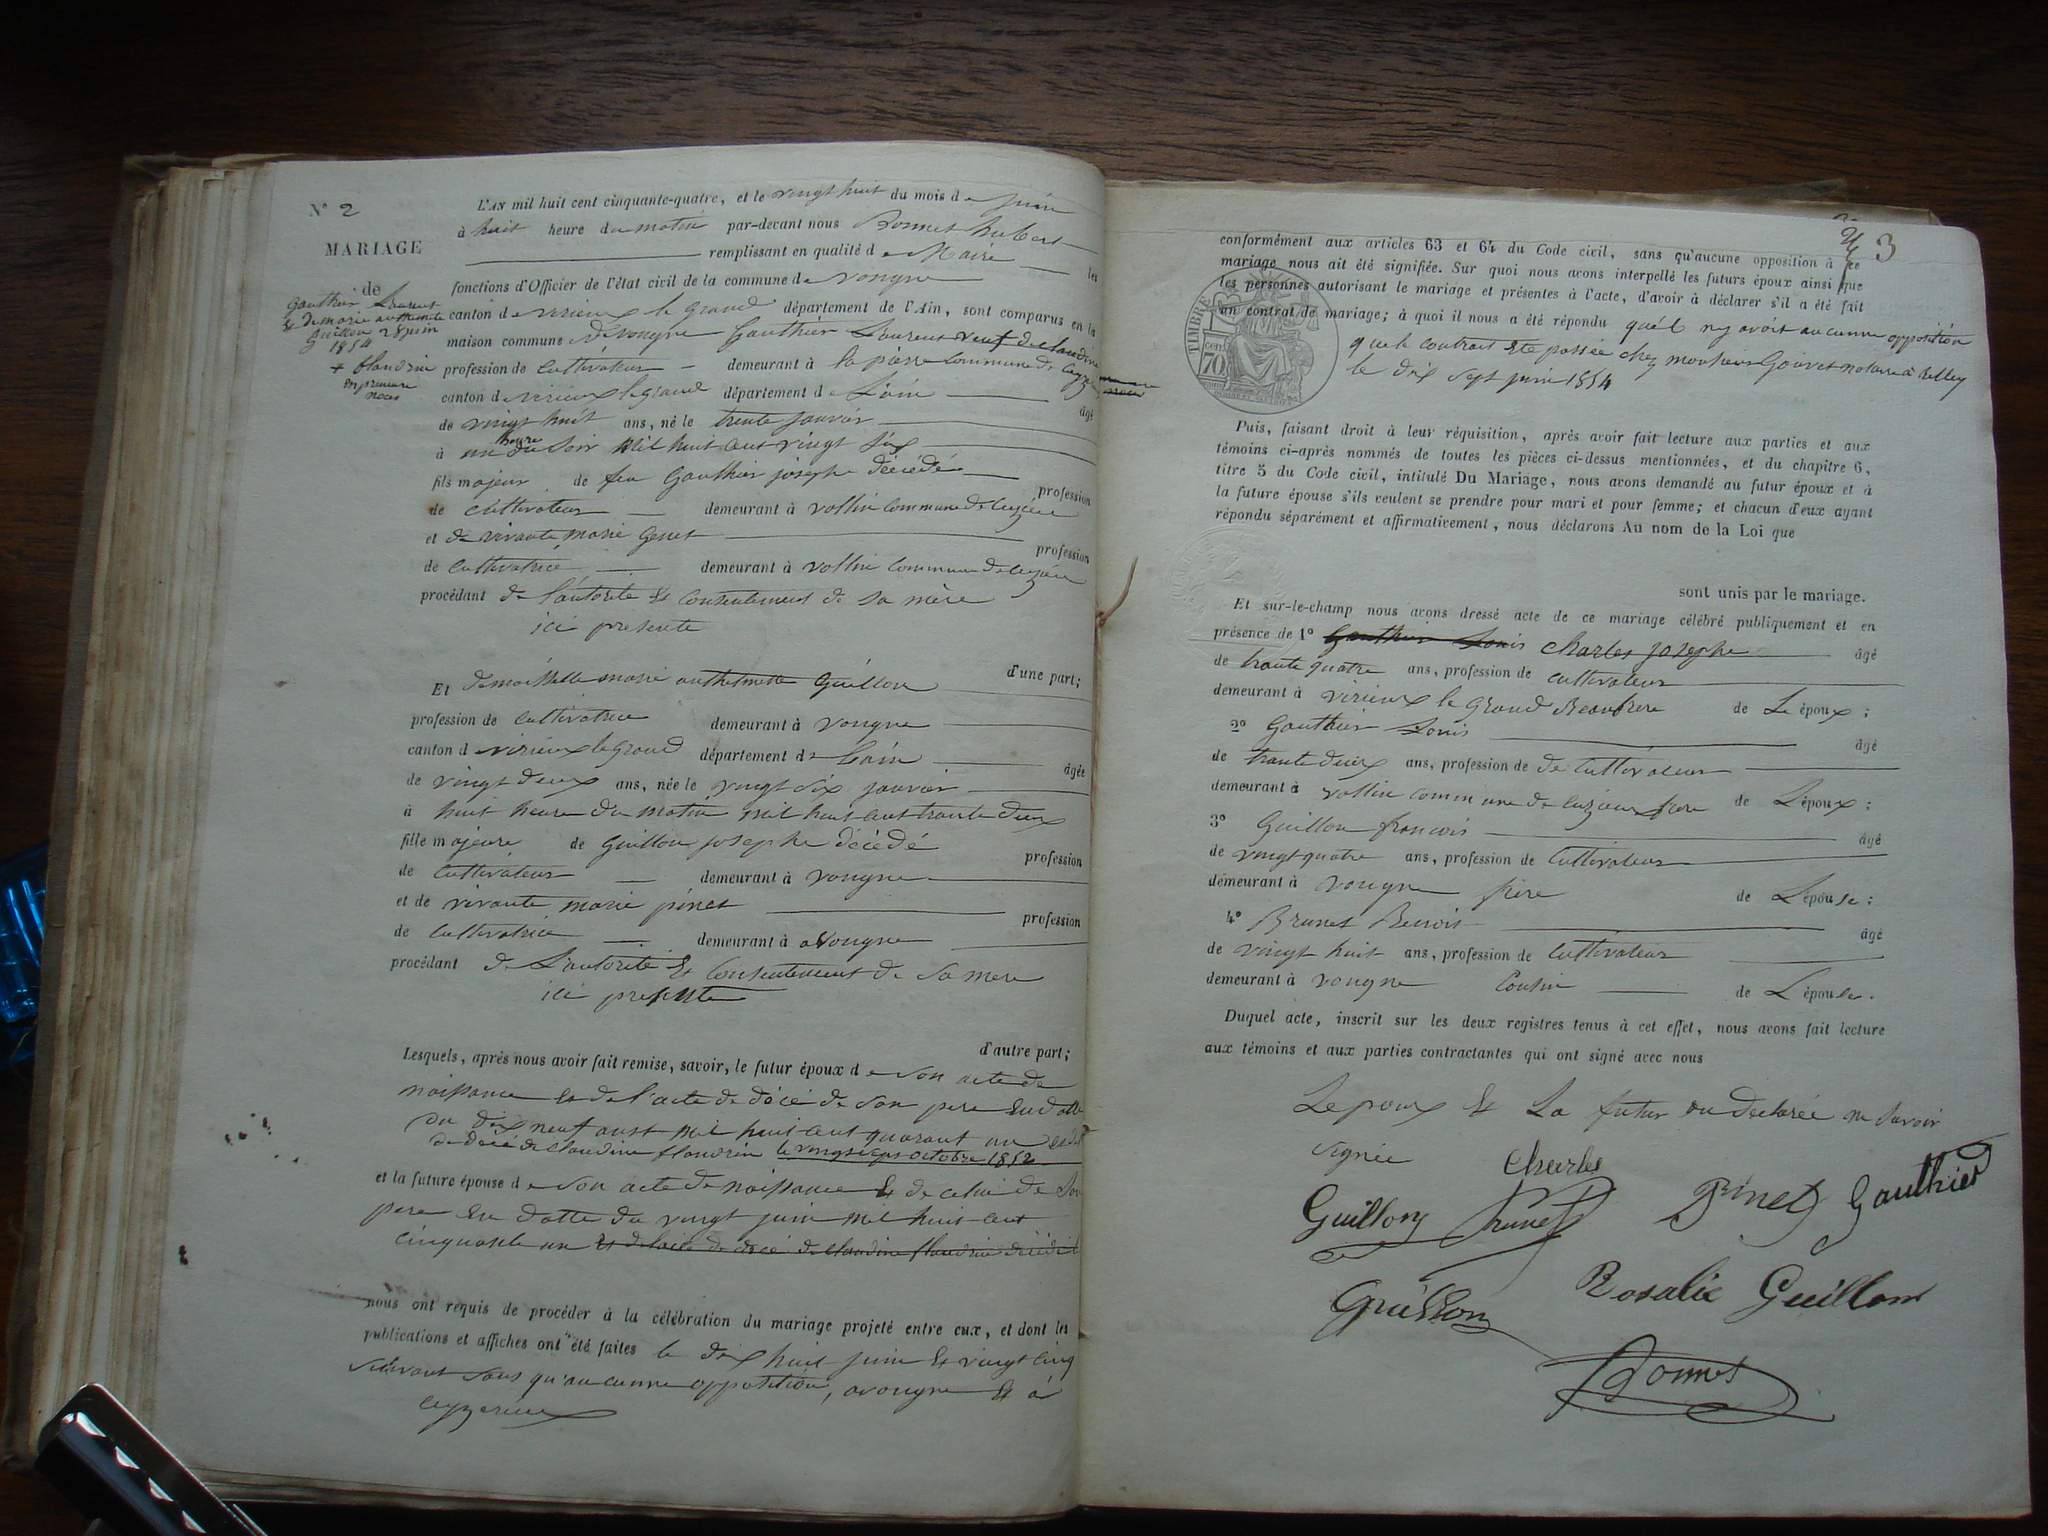 N° 2
MARIAGE
de
Gauthier Laurent
& de marie anthelmette
Guillon 28 juin
1854
+ flandrin
en premiere
noces
L'AN mil huit cent cinquante-quatre, et le vingt huit du mois de juin
à huit heure du matin par-devant nous Bonnet hubert
remplissant en qualité de Maire les
fonctions d'Officier de l'état civil de la commune de vongne
canton de virieux le grand département de l'Ain, sont comparus en la
maison commune de vongne Gauthier Laurent veuf de claudine
profession de Cultivateur demeurant à la pierre commune de
canton de virieux le grand département de L'ain âgé
de vingt huit ans, né le trente janvier
à un heure du soir Mil huit cent vingt six
fils majeur de feu Gauthier josephe décédé
profession
de cultivateur demeurant à vollin commune de
et de vivante marie Genet
profession
de Cultivatrice demeurant à vollin commune de
procédant de l'autorité & consentement de sa mère
ici presente
d'une part;
Et demoiselle marie anthelmette Guillon
profession de Cultivatrice demeurant à vongne
canton d virieux le grand département de L'ain âgée
de vingt deux ans, née le vingt six janvier
à huit heure du matin mil huit cent trante deux
fille majeure de Guillon josephe décédé
profession
de Cultivateur demeurant à vongne
et de vivante marie pinet
profession
de Cultivatrice demeurant à avongne
procédant de L'autorité & Consentement de Sa mere
ici presente
d'autre part;
Lesquels, après nous avoir fait remise, savoir, le futur époux de son acte de
naissance & de l'acte de décé de son pere En datte
du dix neuf aust mil huit cent quarant un
de décé de claudine flandrin le vingt sept octobre 1852
et la future épouse de son acte de naissance & de celui de Son
pere En datte du vingt juin mil huit cent
cinquante un & de l'acte de décé de claudine flandrin
nous ont requis de procéder à la célébration du mariage projeté entre eux, et dont les
publications et affiches ont été faites le dix huit juin & vingt cinq
suivant sans qu'aucunne opposition, avongne & à
ceyzerieux
3
conformément aux articles 63 et 64 du Code civil, sans qu'aucune opposition à ce
mariage nous ait été signifiée. Sur quoi nous avons interpellé les futurs époux ainsi que
les personnes autorisant le mariage et présentes à l'acte, d'avoir à déclarer s'il a été fait
un contrat de mariage; à quoi il nous a été répondu qu'il ny avoit aucunne opposition
que le contrait Ete passée chez monsieur Gouvet notaire à Belley
le dix sept juin 1854
TIMBRE
70
cen
Puis, faisant droit à leur réquisition, après avoir fait lecture aux parties et aux
témoins ci-après nommés de toutes les pièces ci-dessus mentionnées, et du chapitre 6,
titre 5 du Code civil, intitulé Du Mariage, nous avons demandé au futur époux et à
la future épouse s'ils veulent se prendre pour mari et pour femme; et chacun d'eux ayant
répondu séparément et affirmativement, nous déclarons Au nom de la Loi que
sont unis par le mariage.
Et sur-le-champ nous avons dressé acte de ce mariage célébré publiquement et en
présence de 1° Gauthier Louis Charles josephe âgé
de trante quatre ans, profession de cultivateur
demeurant à virieux le grand Beaufrere de Le époux;
2° Gauthier Louis âgé
de trante deux ans, profession de de Cultivateur
demeurant à vollin commune de cuzieux frere de L'époux;
3° Guillon francois âgé
de vingt quatre ans, profession de Cultivateur
demeurant à vongne frère de L'épouse;
4° Brunet Benoit âgé
de vingt huit ans, profession de Cultivateur
demeurant à vongne Cousin de L'épouse.
Duquel acte, inscrit sur les deux registres tenus à cet effet, nous avons fait lecture
aux témoins et aux parties contractantes qui ont signé avec nous
Lepoux & La futur on declarée ne Savoir
signée Charles
Guillon Brunet Pinet Gauthier
Guillon Rosalie Guillon
Bonnet